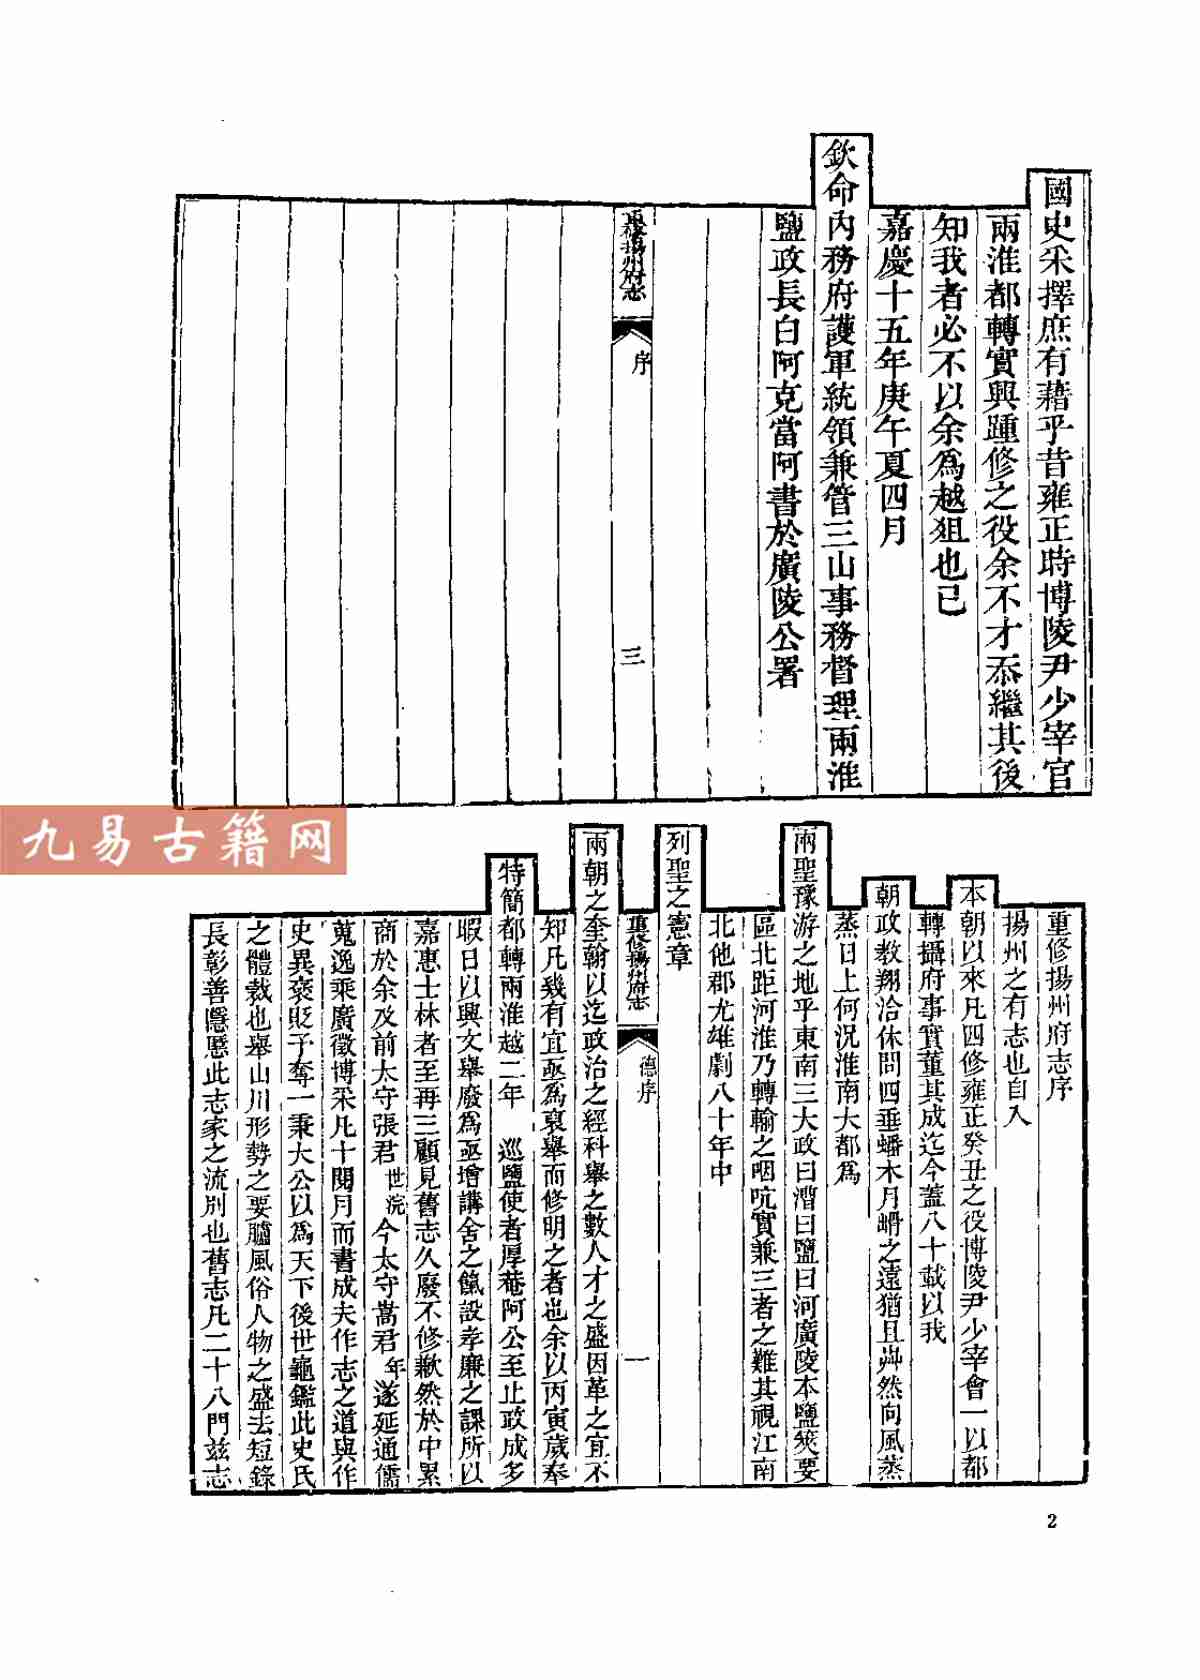 國史采擇庶有藉乎昔雍正時博陵尹少宰官
兩淮都轉實興踵修之役余不才忝繼其後
知我者必不以余為越狙也已
嘉慶十五年庚午夏四月
欽命內務府護軍統領兼管三山事務督理兩淮
鹽政長白阿克當阿書於廣陵公署
重修揚州府志
序
三
重修揚州府志序
揚州之有志也自入
本朝以來凡四修雍正癸丑之役博陵尹少宰會一以都
轉攝府事實董其成迄今蓋八十載以我
朝政教翔洽休問四垂蟠木月㟙之遠猶且喁然向風蒸
蒸日上何況淮南大都為
兩聖豫游之地乎東南三大政曰漕曰鹽曰河廣陵本鹽筴要
區北距河淮乃轉輸之咽吭實兼三者之難其視江南
北他郡尤雄劇八十年中
列聖之憲章
重修揚州府志
德序
一
兩朝之奎翰以迄政治之經科舉之數人才之盛因革之宜不
知凡幾有宜亟為裒舉而修明之者也余以丙寅歲奉
特簡都轉兩淮越二年 巡鹽使者厚菴阿公至止政成多
暇日以興文舉廢為亟增講舍之餼設孝廉之課所以
嘉惠士林者至再三顧見舊志久廢不修歉然於中累
商於余及前太守張君世浣今太守嵩君年遂延通儒
蒐逸乘廣徵博采凡十閱月而書成夫作志之道與作
史異褒貶予奪一秉大公以為天下後世龜鑑此史氏
之體裁也舉山川形勢之要臚風俗人物之盛去短錄
長彰善隱慝此志家之流別也舊志凡二十八門茲志
2
九易古籍网